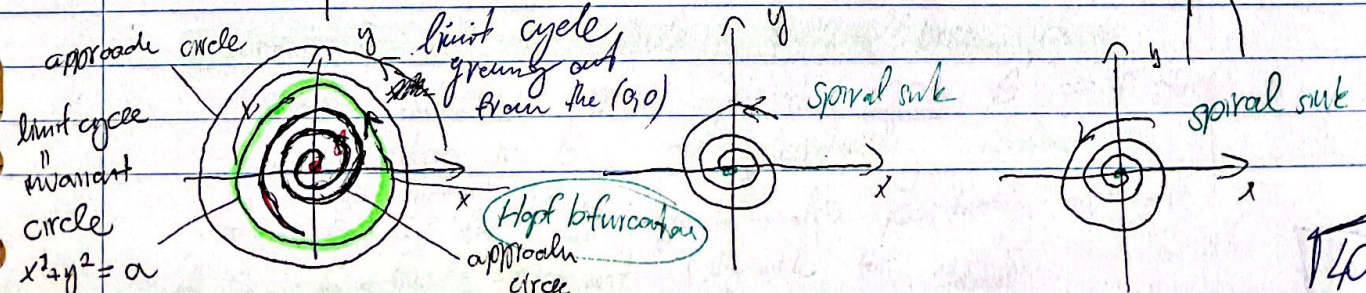 approach circle
limit cycle
"
invariant
circle
x²+y² = a
y
x
limit cycle
growing out
from the (0,0)
Hopf bifurcation
approach
circle
y
spiral sink
x
y
spiral sink
x